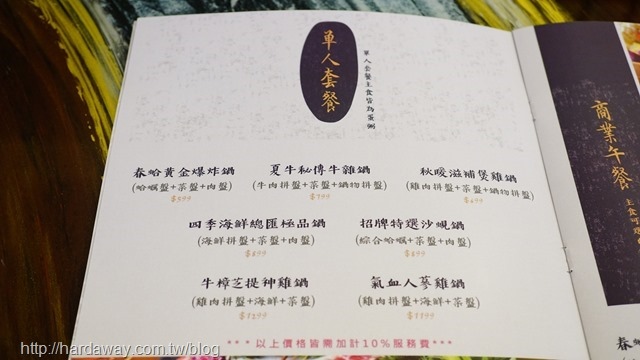 單人套餐
單人套餐主食皆為蛋粥
春哈黃金爆炸鍋
(哈蠣盤+菜盤+肉盤)
$599
夏牛秘傳牛雜鍋
(牛肉拼盤+菜盤+鍋物拼盤)
$799
秋暖滋補煲雞鍋
(雞肉拼盤+菜盤+鍋物拼盤)
$699
四季海鮮總匯極品鍋
(海鮮拼盤+菜盤+肉盤)
$899
招牌特選沙蜆鍋
(綜合哈蠣+菜盤+肉盤)
$899
牛樟芝提神雞鍋
(雞肉拼盤+海鮮+菜盤)
$1299
氣血人蔘雞鍋
(雞肉拼盤+海鮮+菜盤)
$1199
***以上價格皆需加計10%服務費***
商業午餐
主食可
春
http://hardaway.com.tw/blog